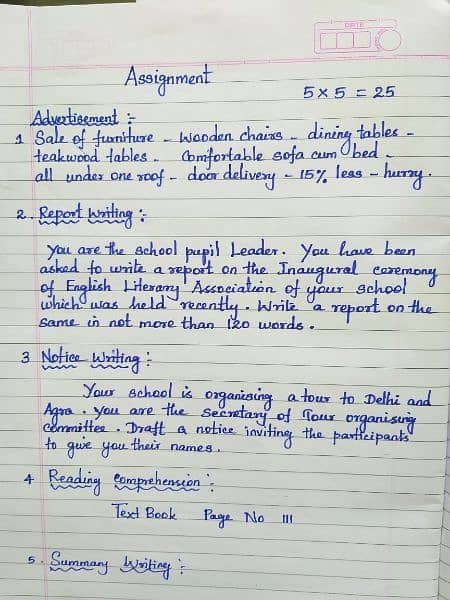 DATE
Assignment
5 × 5 = 25
Advertisement :-
1 Sale of furniture - Wooden chairs - dining tables -
teakwood tables - Comfortable sofa cum bed -
all under one roof - door delivery - 15% less - hurry.
2. Report Writing :-
You are the school pupil Leader. You have been
asked to write a report on the Inaugural ceremony
of English Literary Association of your school
which was held recently. Write a report on the
same in not more than 120 words.
3 Notice Writing :-
Your school is organising a tour to Delhi and
Agra. You are the Secretary of Tour organising
committee. Draft a notice inviting the participants
to give you their names.
4 Reading Comprehension :-
Text Book Page No 111
5. Summary Writing :-